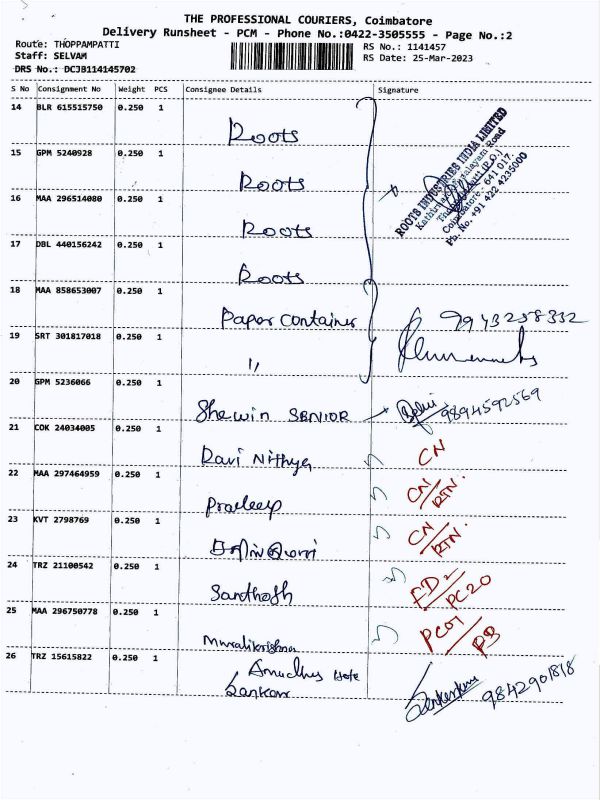 THE PROFESSIONAL COURIERS, Coimbatore
Delivery Runsheet - PCM - Phone No.:0422-3505555 - Page No.:2
Route: THOPPAMPATTI
RS No.: 1141457
Staff: SELVAM
RS Date: 25-Mar-2023
DRS No.: DCJB114145702
S No Consignment No Weight PCS Consignee Details Signature
14 BLR 615515750 0.250 1
Roots
15 GPM 5240928 0.250 1
Roots
16 MAA 296514080 0.250 1
Roots
17 DBL 440156242 0.250 1
Roots
ROOTS INDUSTRIES INDIA LIMITED
Coimbatore - 641 017.
Ph. No. +91 422 4235000
18 MAA 858653007 0.250 1
Paper Container 9943258332
19 SRT 301817018 0.250 1
"
20 GPM 5236066 0.250 1
Sherwin SENIOR 9894592569
21 COK 24034005 0.250 1
Ravi Nithya CN
22 MAA 297464959 0.250 1
Pradeep CN/RTN.
23 KVT 2798769 0.250 1
CN/RTN.
24 TRZ 21100542 0.250 1
Santhosh FD2/PC20
25 MAA 296750778 0.250 1
Muralikrishna
26 TRZ 15615822 0.250 1
Sankar 9842901818